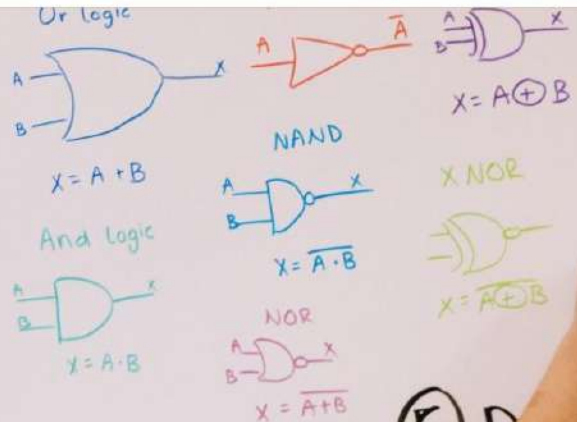 Or logic
A
B
X
X = A + B
And logic
A
B
X
X = A · B
A
A̅
NAND
A
B
X
X = A̅ ̅·̅ ̅B̅
NOR
A
B
X
X = A̅+̅B̅
A
B
X
X = A ⊕ B
X NOR
X = A̅ ̅⊕̅ ̅B̅